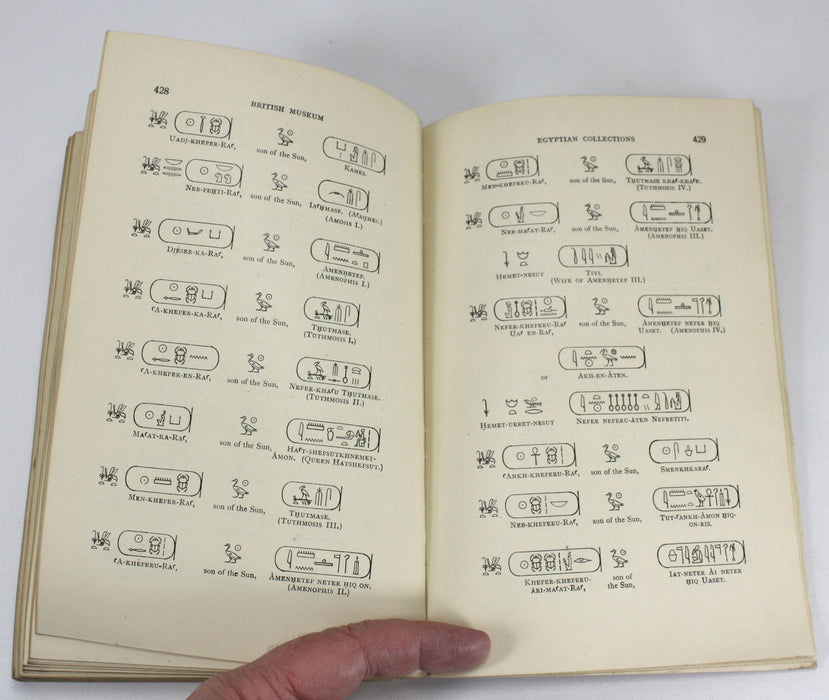 428
BRITISH MUSEUM
UADJ-KHEPER-RAʿ, son of the Sun, KAMES.
NEB-PEḤTI-RAʿ, son of the Sun,
(AMOSIS I.)
DJESER-KA-RAʿ, son of the Sun, AMENḤETEP.
(AMENOPHIS I.)
ʿA-KHEPER-KA-RAʿ, son of the Sun, TḤUTMASE.
(TUTHMOSIS I.)
ʿA-KHEPER-EN-RAʿ, son of the Sun, NEFER-KHAʿU TḤUTMASE.
(TUTHMOSIS II.)
MAʿAT-KA-RAʿ, son of the Sun, HAʾT-SHEPSUTKHNEMET-
ÂMON. (QUEEN HATSHEPSUT.)
MEN-KHEPER-RAʿ, son of the Sun, TḤUTMASE.
(TUTHMOSIS III.)
ʿA-KHEPERU-RAʿ, son of the Sun, ÂMENḤETEP NETER ḤIQ ON.
(AMENOPHIS II.)
EGYPTIAN COLLECTIONS
429
MEN-KHEPERU-RAʿ, son of the Sun, TḤUTMASE KHAʿ-KHAʿU.
(TUTHMOSIS IV.)
NEB-MAʿAT-RAʿ, son of the Sun, ÂMENḤETEP ḤIQ UASET.
(AMENOPHIS III.)
ḤEMET-NESUT TIYI.
(WIFE OF AMENḤETEP III.)
NEFER-KHEPERU-RAʿ son of the Sun, ÂMENḤETEP NETER ḤIQ
UAʿ EN-RAʿ, UASET. (AMENOPHIS IV.)
or AKH-EN-ÂTEN.
ḤEMET-UERET-NESUT NEFER NEFERU-ÂTEN NEFRETITI.
ʿANKH-KHEPERU-RAʿ, son of the Sun, SMENKHKARAʿ.
NEB-KHEPERU-RAʿ, son of the Sun, TUT-ʿANKH-ÂMON ḤIQ-
ON-RIS.
KHEPER-KHEPERU- son of IAT-NETER ÂI NETER
ÂRI-MAʿAT-RAʿ, the Sun, ḤIQ UASET.